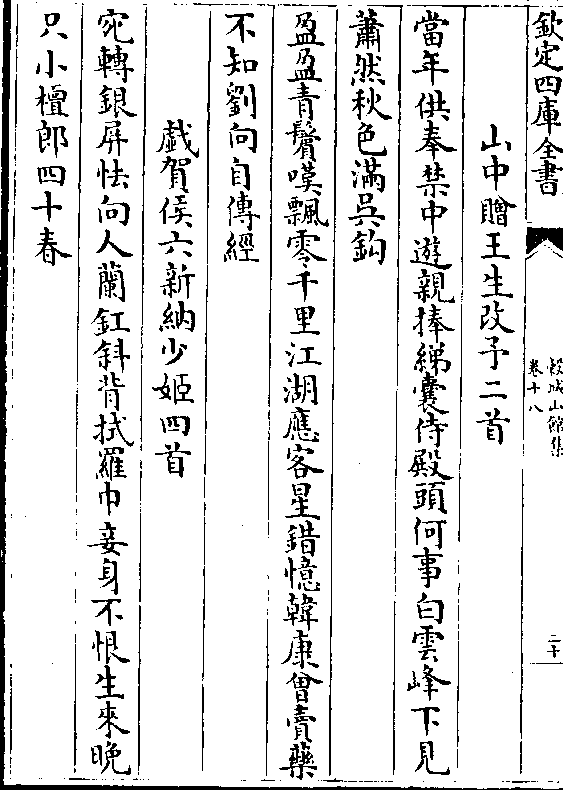 欽定四庫全書
榖城山館集
卷十八
二十
山中贈王生改予二首
當年供奉禁中遊親捧綈囊侍殿頭何事白雲峰下見
蕭然秋色滿吳鈎
盈盈青鬢嘆飄零千里江湖應客星錯憶韓康曾賣藥
不知劉向自傳經
戲賀侯六新納少姬四首
宛轉銀屏怯向人蘭釭斜背拭羅巾妾身不恨生來晚
只小檀郎四十春